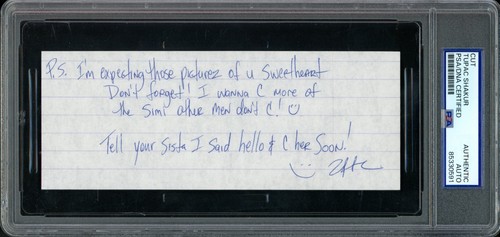 P.S. I'm expecting those picturez of u Sweetheart
Don't forget! I wanna C more of
the Simi other men don't C!
Tell your Sista I said hello & C her Soon!
CUT
TUPAC SHAKUR
PSA/DNA CERTIFIED
AUTHENTIC
AUTO
85330591
PSA